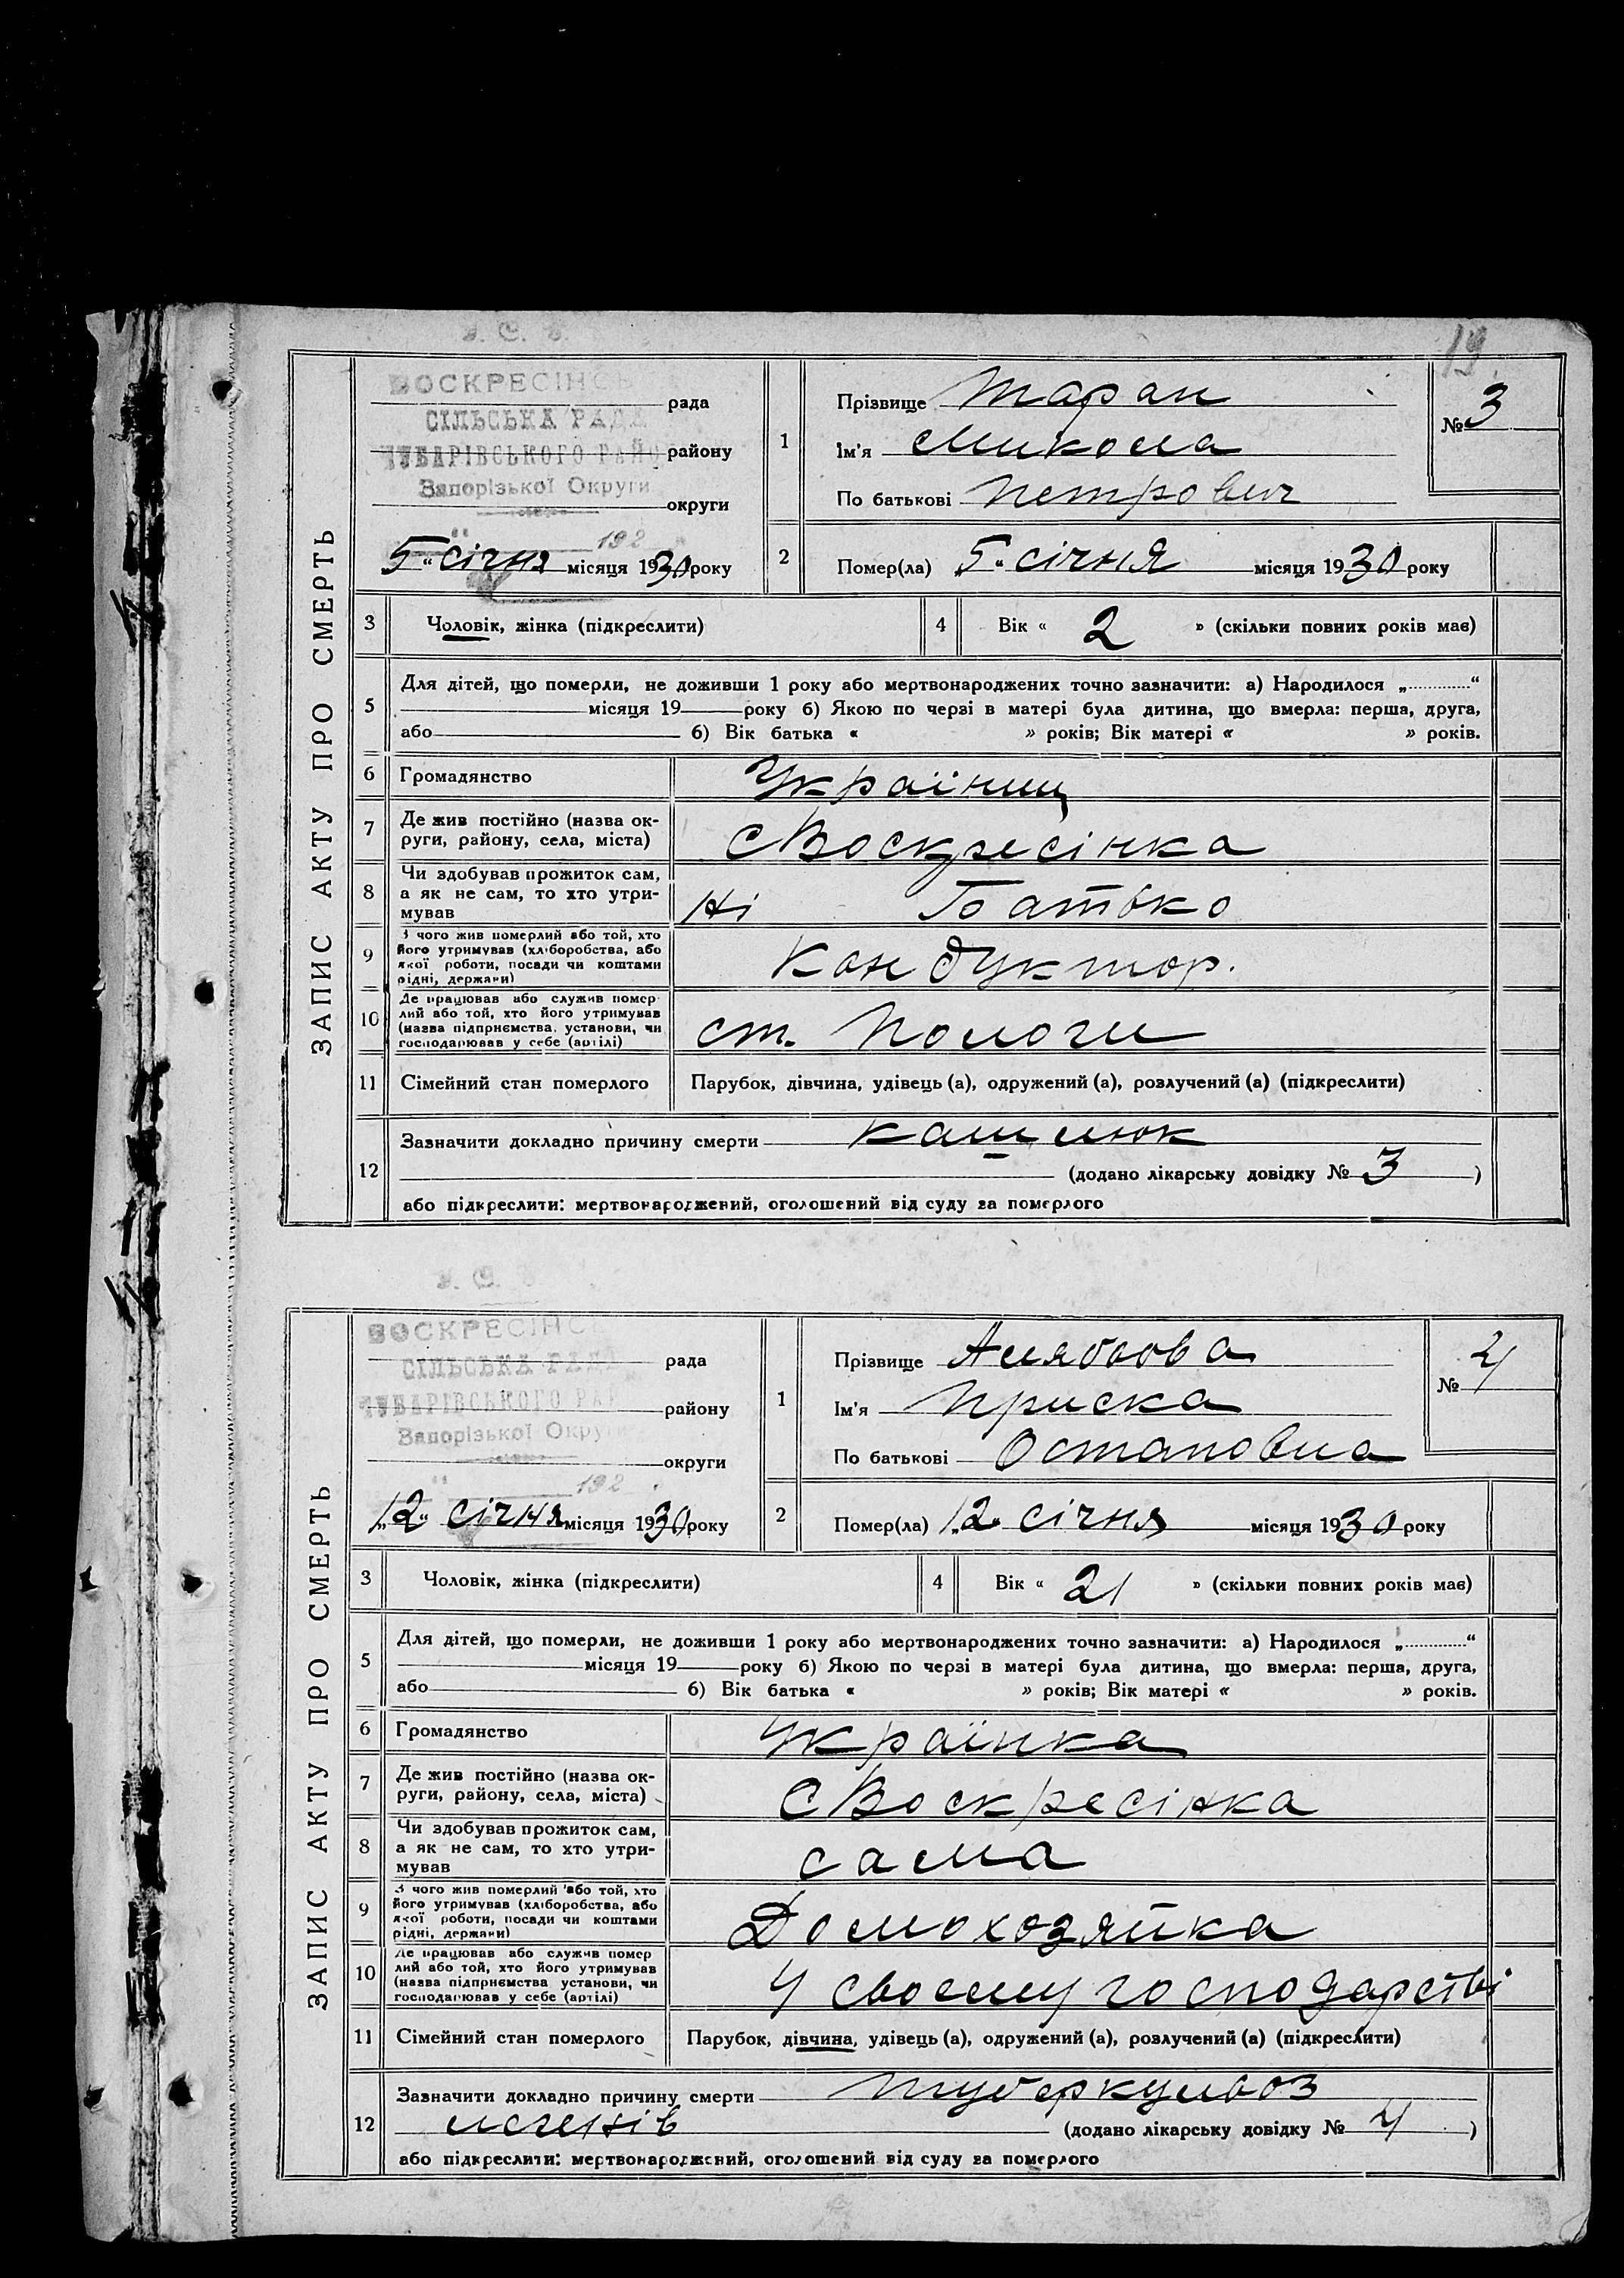 19
ЗАПИС АКТУ ПРО СМЕРТЬ
У. С.
ВОСКРЕСІНСЬ
рада
СІЛЬСЬКА РАДА
ЧУБАРІВСЬКОГО РАЙО
району
Запорізької Округи
округи
192
5 "січня місяця 1930 року
1
Прізвище Таран
Ім'я Микола
По батькові Петрович
№ 3
2
Помер(ла) „5" січня місяця 1930 року
3
Чоловік, жінка (підкреслити)
4
Вік « 2 » (скільки повних років має)
5
Для дітей, що померли, не доживши 1 року або мертвонароджених точно зазначити: а) Народилося „............“
місяця 19 року б) Якою по черзі в матері була дитина, що вмерла: перша, друга,
або б) Вік батька « » років; Вік матері « » років.
6
Громадянство
Україниц
7
Де жив постійно (назва ок-
руги, району, села, міста)
С Воскресінка
8
Чи здобував прожиток сам,
а як не сам, то хто утри-
мував
Ні Батько
9
З чого жив померлий або той, хто
його утримував (хліборобства, або
якої роботи, посади чи коштами
рідні, держави)
Кондуктор.
10
Де працював або служив помер-
лий або той, хто його утримував
(назва підприємства, установи, чи
господарював у себе (артілі)
ст. Пологи
11
Сімейний стан померлого
Парубок, дівчина, удівець (а), одружений (а), розлучений (а) (підкреслити)
12
Зазначити докладно причину смерти кашлюк
(додано лікарську довідку № 3 )
або підкреслити: мертвонароджений, оголошений від суду за померлого
ЗАПИС АКТУ ПРО СМЕРТЬ
У. С.
ВОСКРЕСІНС
рада
СІЛЬСЬКА РАДА
ЧУБАРІВСЬКОГО РАЙ
району
Запорізької Окру
округи
192
„12" січня місяця 1930 року
1
Прізвище Алябьова
Ім'я Приска
По батькові Остаповна
№ 4
2
Помер(ла) „12" січня місяця 1930 року
3
Чоловік, жінка (підкреслити)
4
Вік « 21 » (скільки повних років має)
5
Для дітей, що померли, не доживши 1 року або мертвонароджених точно зазначити: а) Народилося „............“
місяця 19 року б) Якою по черзі в матері була дитина, що вмерла: перша, друга,
або б) Вік батька « » років; Вік матері « » років.
6
Громадянство
Українка
7
Де жив постійно (назва ок-
руги, району, села, міста)
С Воскресінка
8
Чи здобував прожиток сам,
а як не сам, то хто утри-
мував
сама
9
З чого жив померлий або той, хто
його утримував (хліборобства, або
якої роботи, посади чи коштами
рідні, держави)
Домохозяйка
10
Де працював або служив помер
лий або той, хто його утримував
(назва підприємства установи, чи
господарював у себе (артілі)
У своєму господарстві
11
Сімейний стан померлого
Парубок, дівчина, удівець (а), одружений (а), розлучений (а) (підкреслити)
12
Зазначити докладно причину смерти туберкульоз
легенів (додано лікарську довідку № 4 )
або підкреслити: мертвонароджений, оголошений від суду за померлого